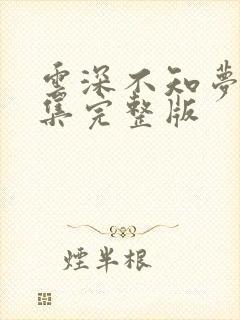 雲深不知夢
集完整版
煙半根